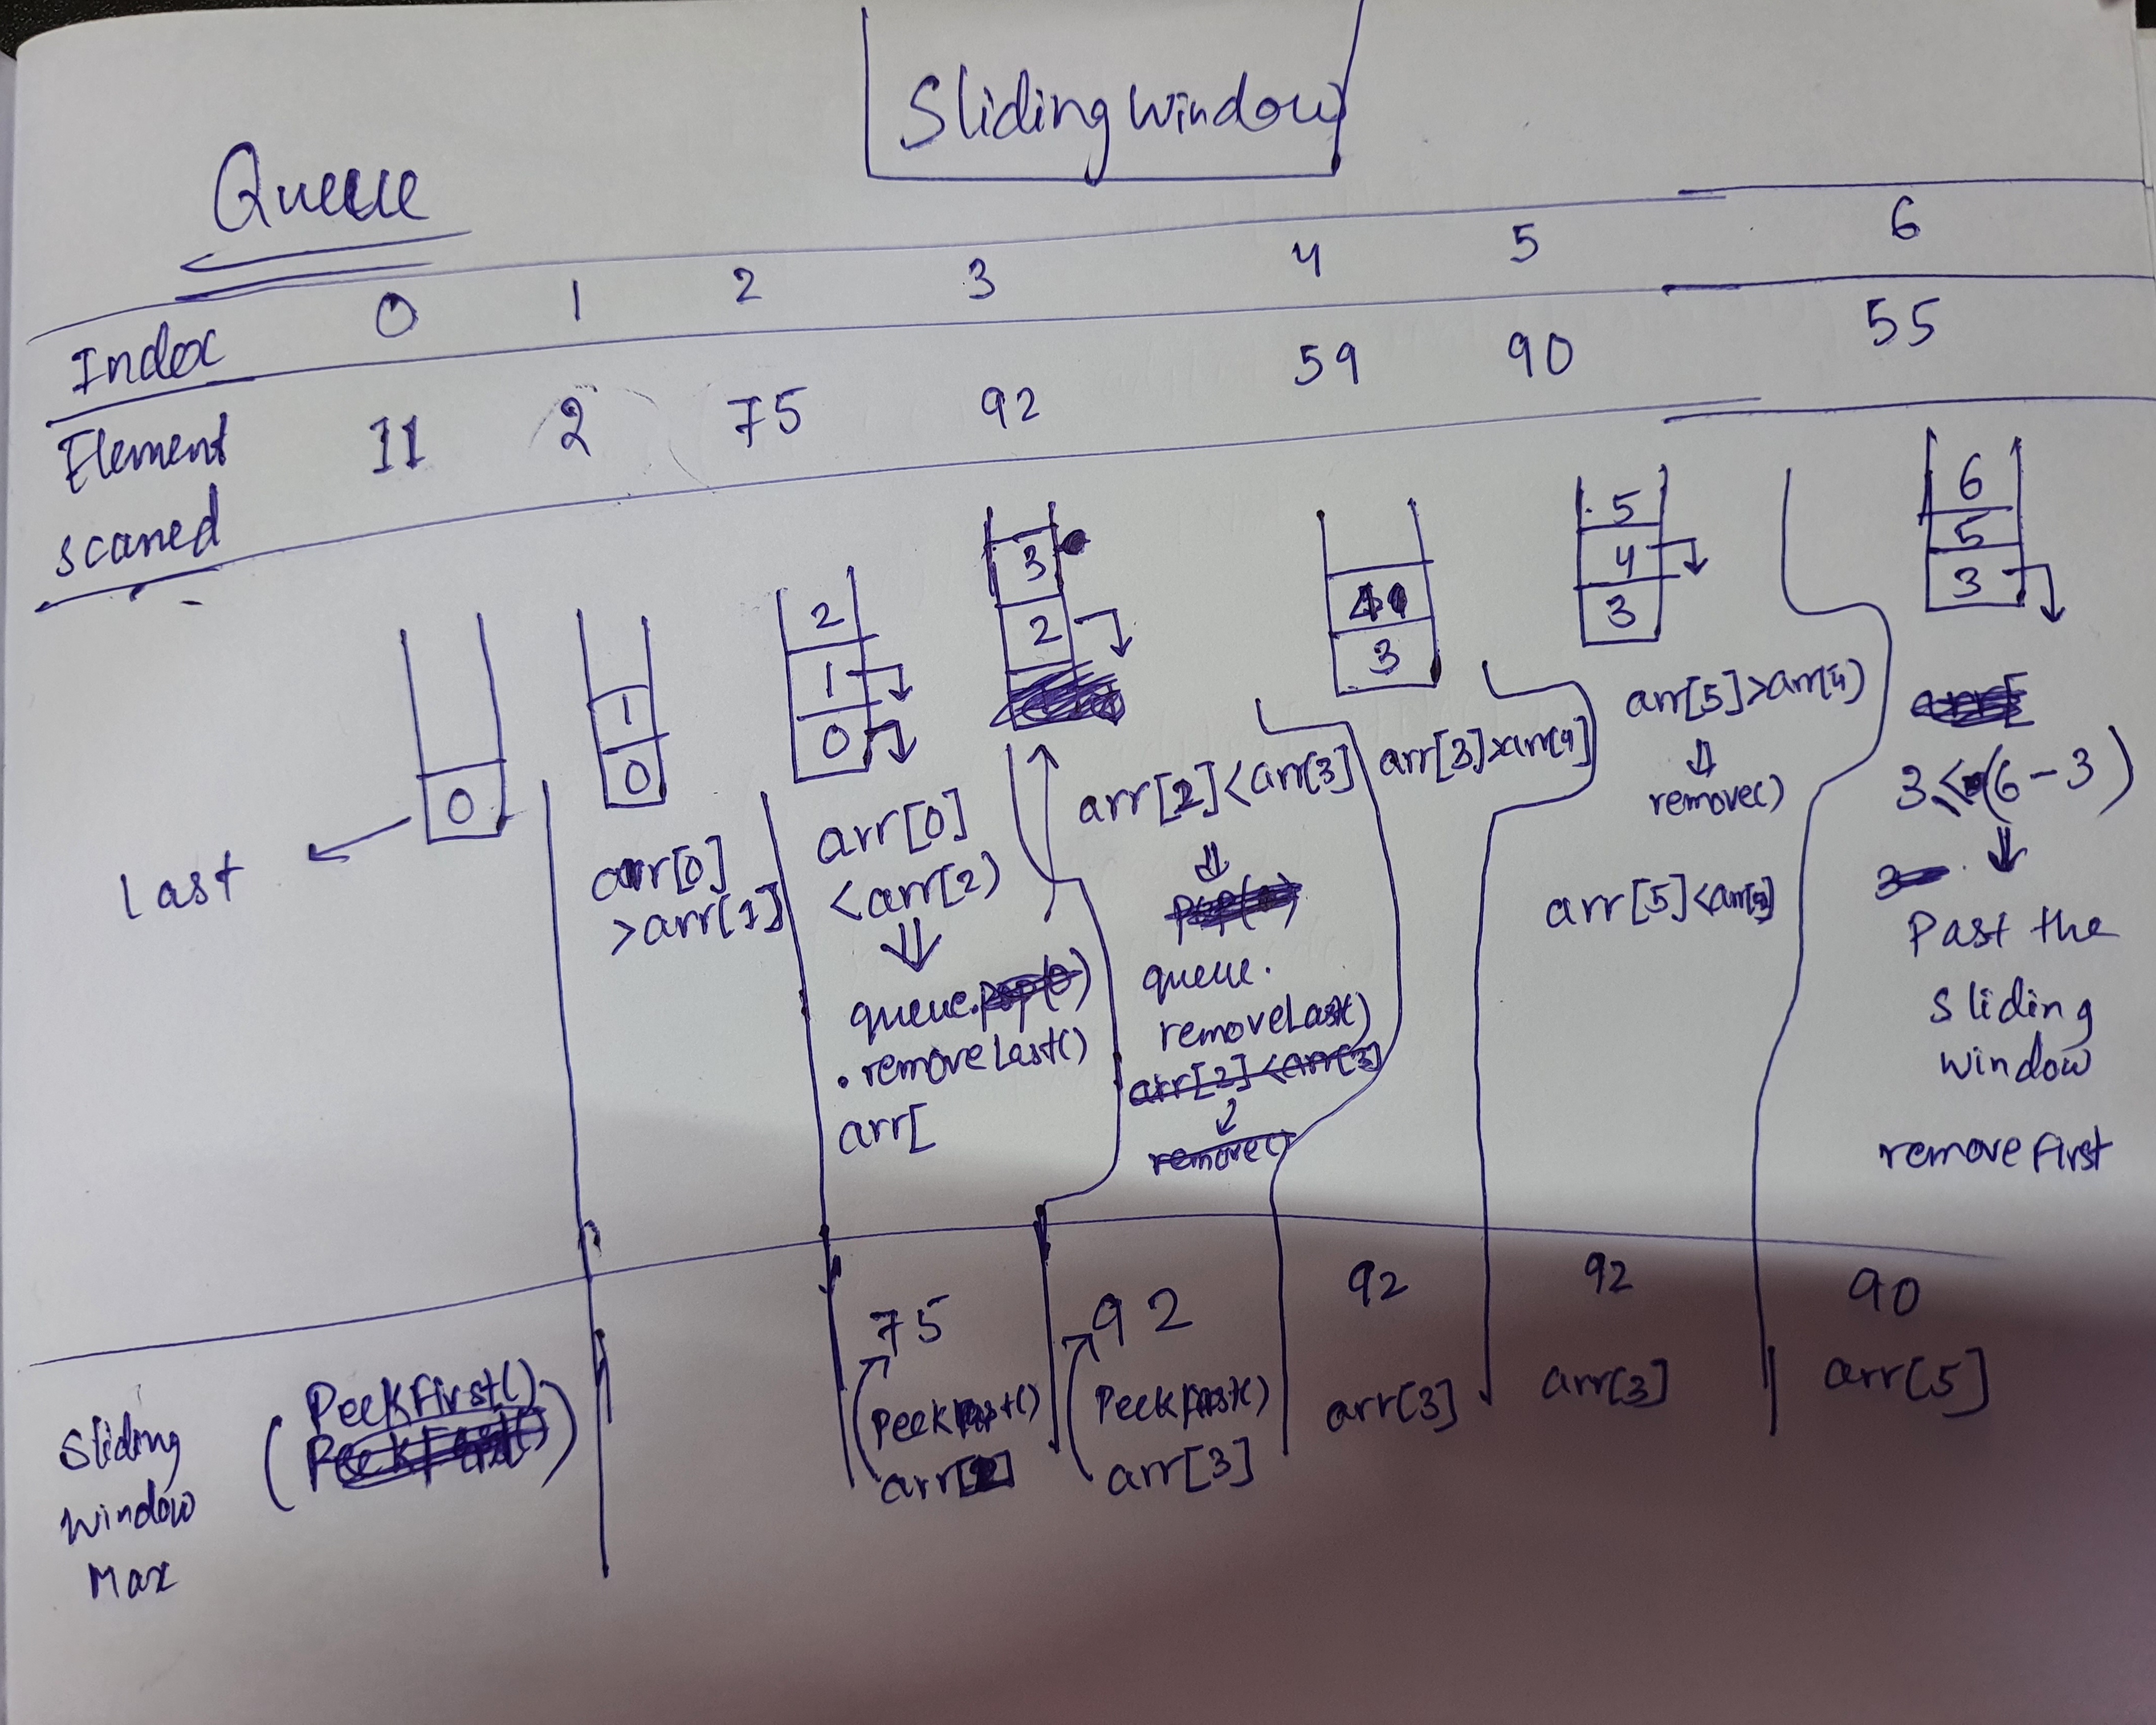 Sliding Window
Queue
Index 0 1 2 3 4 5 6
Element scaned 11 2 75 92 59 90 55
last
0
1
0
arr[0]
>arr[1]
2
1
0
arr[0]
<arr[2)
⇓
queue.
.removeLast()
arr[
3
2
arr[2]<arr[3]
⇓
queue.
removeLast()
arr[2]<arr[3]
↓
remove()
3
arr[3]>arr[4]
5
4
3
arr[5]>arr[4)
⇓
remove()
arr[5]<arr[3]
6
5
3
3<(6-3)
⇓
Past the
sliding
window
remove first
Sliding
Window
Max
(PeekFirst()
)
75
arr[2]
92
arr[3]
92
arr[3]
92
arr[3]
90
arr[5]